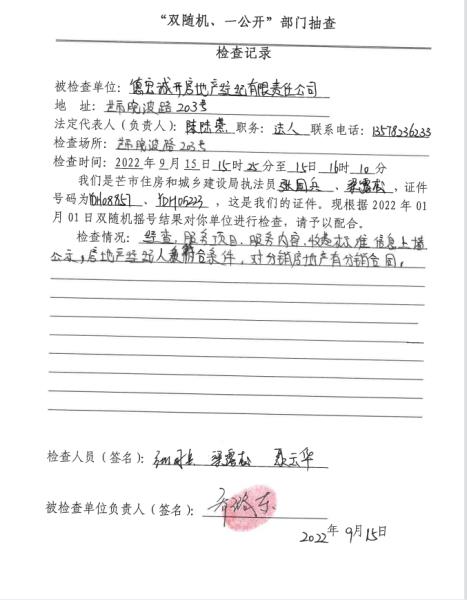 “双随机、一公开”部门抽查
检查记录
被检查单位：德宏诚开房地产经纪有限责任公司
地 址：芒市 路203号
法定代表人（负责人）： 职务：法人 联系电话：13578236233
检查场所：芒市 路203号
检查时间：2022年9月15日15时25分至15日16时10分
我们是芒市住房和城乡建设局执法员 ，证件
号码为YDH08857、YDH05223，这是我们的证件。现根据2022年01
月01日双随机摇号结果对你单位进行检查，请予以配合。
检查情况：经查，服务项目，服务内容，收费标准信息上墙
公示，房地产经纪人员符合条件，对分销房地产有分销合同。
检查人员（签名）：
被检查单位负责人（签名）：
2022年9月15日